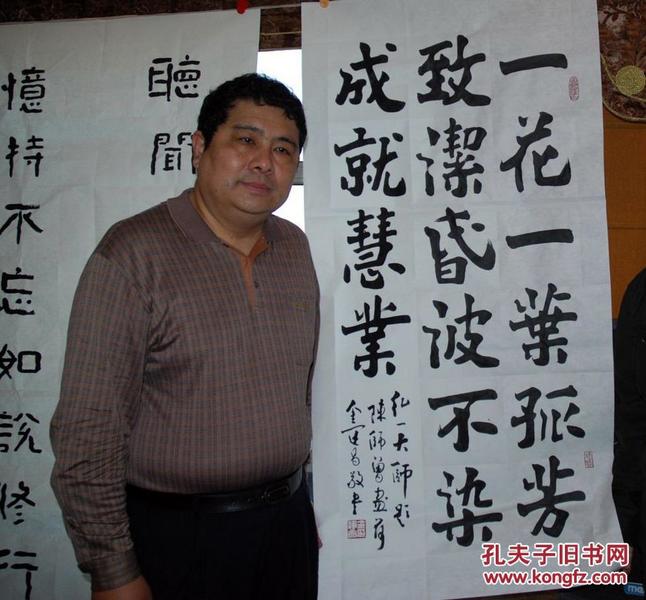 一花一葉孤芳
致潔昏波不染
成就慧業
弘一大師題
陳師曾畫荷
敬書
聽聞
憶持不忘如說修行
孔夫子旧书网
www.kongfz.com